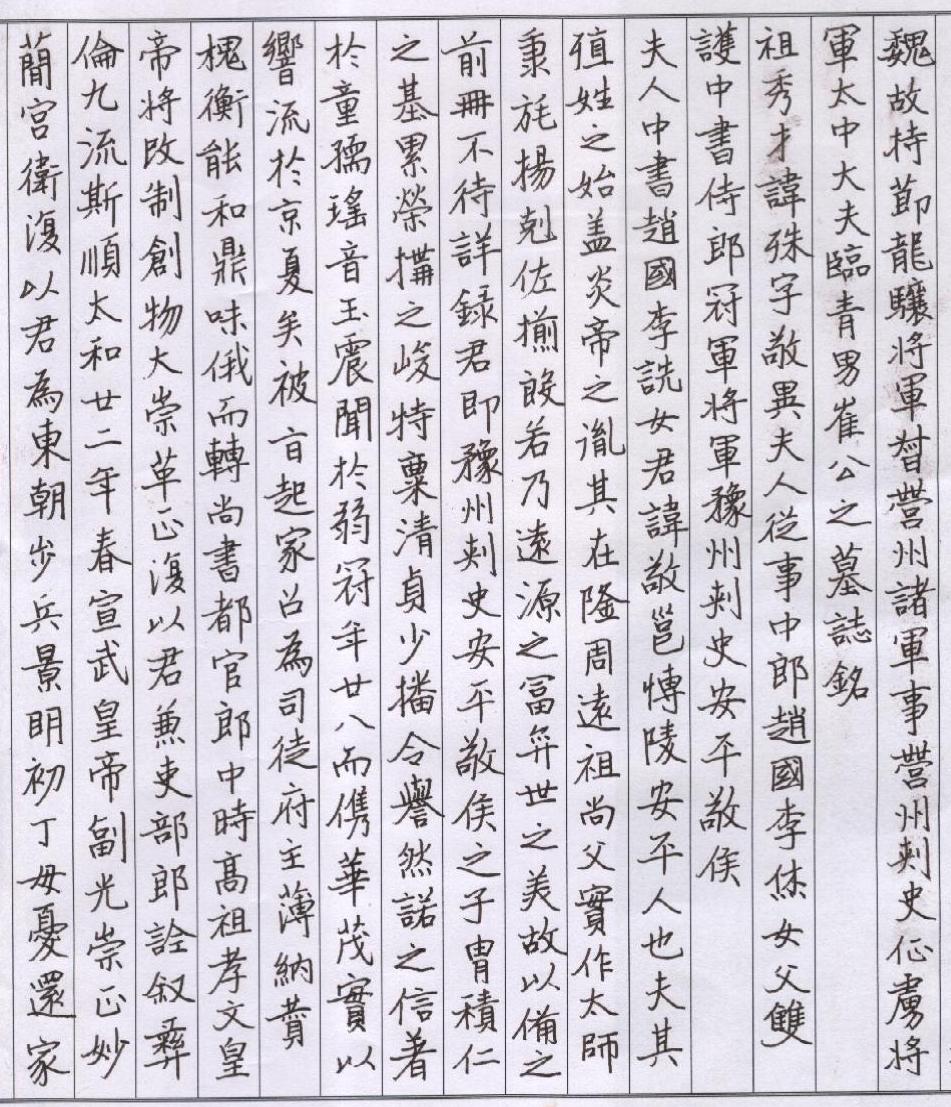 魏故持節龍驤將軍督營州諸軍事營州刺史征虜將
軍太中大夫臨青男崔公之墓誌銘
祖秀才諱殊字敬異夫人從事中郎趙國李烋女父雙
護中書侍郎冠軍將軍豫州刺史安平敬侯
夫人中書趙國李詵女君諱敬邕博陵安平人也夫其
殖姓之始盖炎帝之胤其在隆周遠祖尚父實作太師
秉旄揚剋佐揃殷若乃遠源之富弈世之美故以備之
前冊不待詳錄君即豫州刺史安平敬侯之子胄積仁
之基累榮搆之峻特稟清貞少播令譽然諾之信著
於童孺瑤音玉震聞於弱冠年廿八而儁華茂實以
響流於京夏矣被旨起家召為司徒府主薄納贊
槐衡能和鼎味俄而轉尚書都官郎中時高祖孝文皇
帝將改制創物大崇革正復以君兼吏部郎詮叙彝
倫九流斯順太和廿二年春宣武皇帝副光崇正妙
蕳宮衛復以君為東朝步兵景明初丁母憂還家